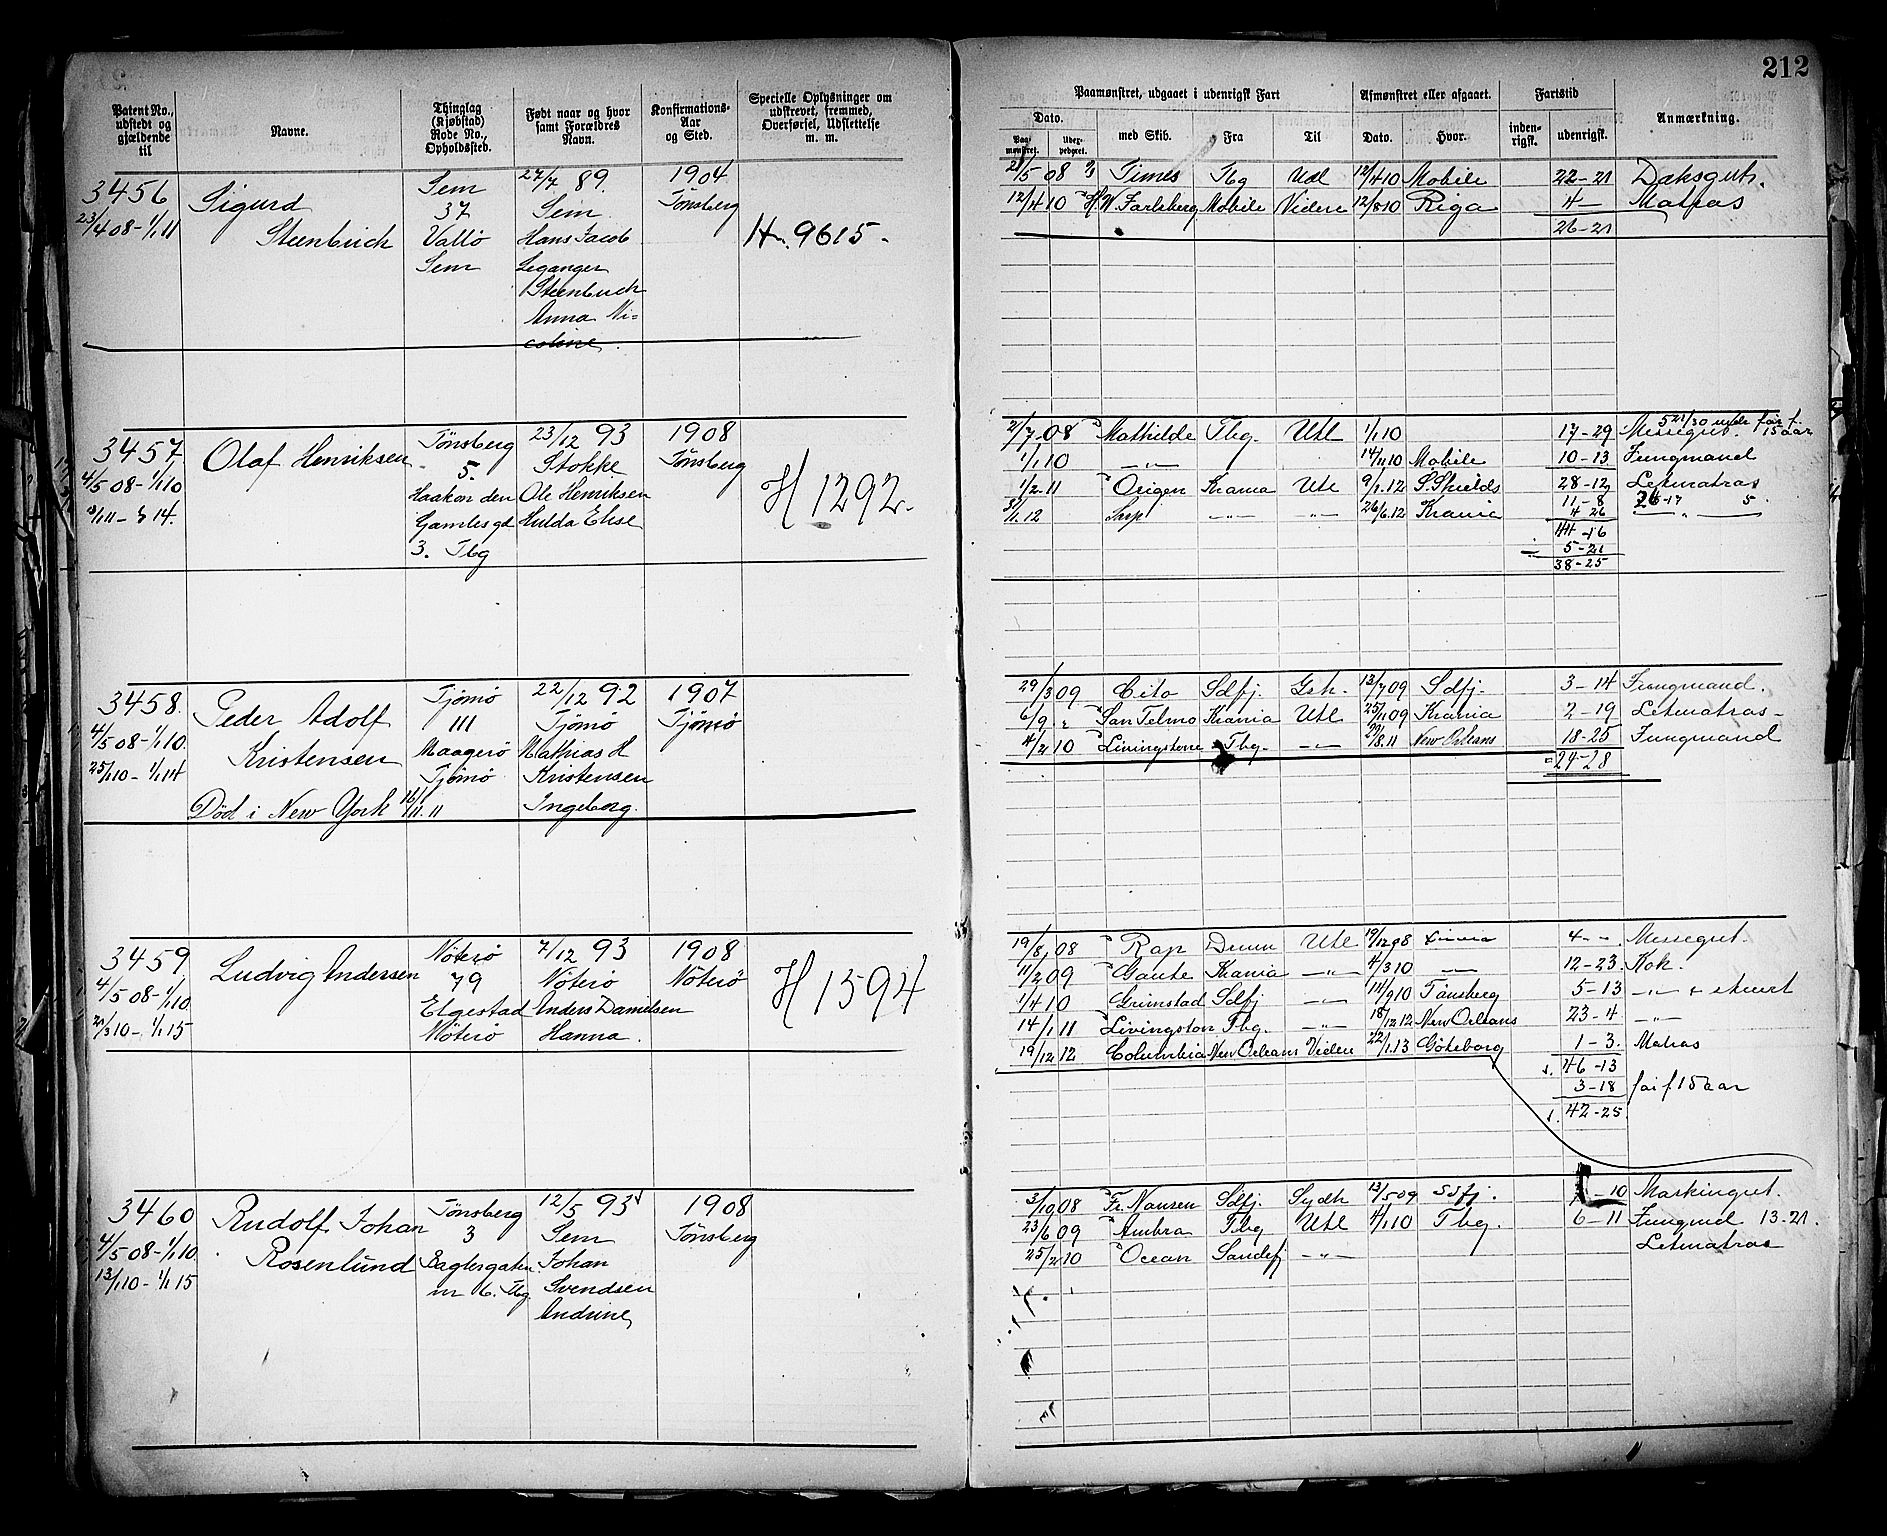 212
Patent No., udstedt og gjældende til
Navne.
Thinglag (Kjøbstad) Rode No., Opholdssteb.
Født naar og hvor samt Forældres Navn.
Konfirmations-Aar og Sted.
Specielle Oplysninger om udskrevet, fremmed, Overførsel, Udslettelse m. m.
Paamønstret, udgaaet i udenrigsk Fart
Afmønstret eller afgaaet.
Fartstid
Anmærkning.
Dato.
med Skib.
Fra
Til
Dato.
Hvor.
inden-rigsk.
udenrigsk.
3456
23/4 08 - 1/1 11
Sigurd
Steenbuch
Sem
37
Vallö
Sem
27/7 89.
Sem
Hans Jacob
Leganger
Steenbuch
Anna Ni=
coline
1904
Tönsberg
H. 9615.
21/5 08 Times Tbg Udl 12/4 10 Mobile 22-21 Dæksgut.
12/4 10 H W Jarlsberg Mobile Videre 12/8 10 Riga 4- Matros
26-21
3457
4/5 08 - 1/1 10
Olaf Henriksen
Tönsberg
5.
Haakon den
Gamlesgd
3. Tbg
23/12 93
Stokke
Ole Henriksen
Hulda Elise
1908
Tönsberg
H 1292.
2/7 08 Mathilde Tbg. Utl 1/1 10 17-29 Messegut. 5 21/30 under fai f. 15 aar
1/1 10 -"- 14/11 10 Mobile 10-13 Jungmand
1/2 11 Origen Krania Utl 9/1.12 S. Shields 28-12 Letmatros
1.12 -"- -"- 26/6.12 Krania 11-8
4 26
44-16
5-21
38-25
3458.
4/5 08 - 1/1 10.
25/1 10 - 1/1 14
Peder Adolf
Kristensen
Död i New York 16/11.11
Tjömö
111
Maagerö
Tjömö
22/12 92
Tjömö
Mathias H
Kristensen
Ingeborg.
1907
Tjömö
29/3 09 Cito Sdfj. Gsh. 13/7 09 Sdfj. 3-14 Jungmand.
6/9 " San Telmo Krania Utl 25/11 09 Krania 2-19 Letmatros
4/2 10 Livingstone Tbg. -"- 29/8.11 New Orleans 18-25 Jungmand
24-28
3459
4/5 08 - 1/1 10.
21/3 10 - 1/1 15
Ludvig Andersen
Nöterö
79
Elgestad
Nöterö
7/12 93
Nöterö
Anders Danielsen
Hanna.
1908
Nöterö
H 1594
19/8 08 Rap Utl 19/12 08 Krania 4-- Messegut.
11/2 09 Gaute Krania -"- 4/3 10 -"- 12-23 Kok.
1/4 10 Grimstad Sdfj -"- 14/9 10 Tönsberg 5-13 -"- + stuert
14/1 11 Livingston Tbg. -"- 18/12 12 New Orleans 23-4 -"-
19/12 12 Columbia New Orleans Videre 22/1.13 Göteborg 1-3. Matros
46-13
3-18 fai f 15 aar
42-25
3460
4/5 08 - 1/1 10
13/1 10 - 1/1 15
Rudolf Johan
Rosenlund
Tönsberg
3
Baglergaten
n 6. Tbg.
12/5 93
Sem
Johan
Svendsen
Andrine
1908
Tönsberg
3/10 08 Fr. Nansen Sdfj. Sydh 13/5 09 Sdfj. -10 Maskingut.
23/6 09 Ambra Tbg Utl 4/1 10 Tbg. 6-11 Jungmd 13-21.
25/2 10 Ocean Sandefj -"- Letmatros